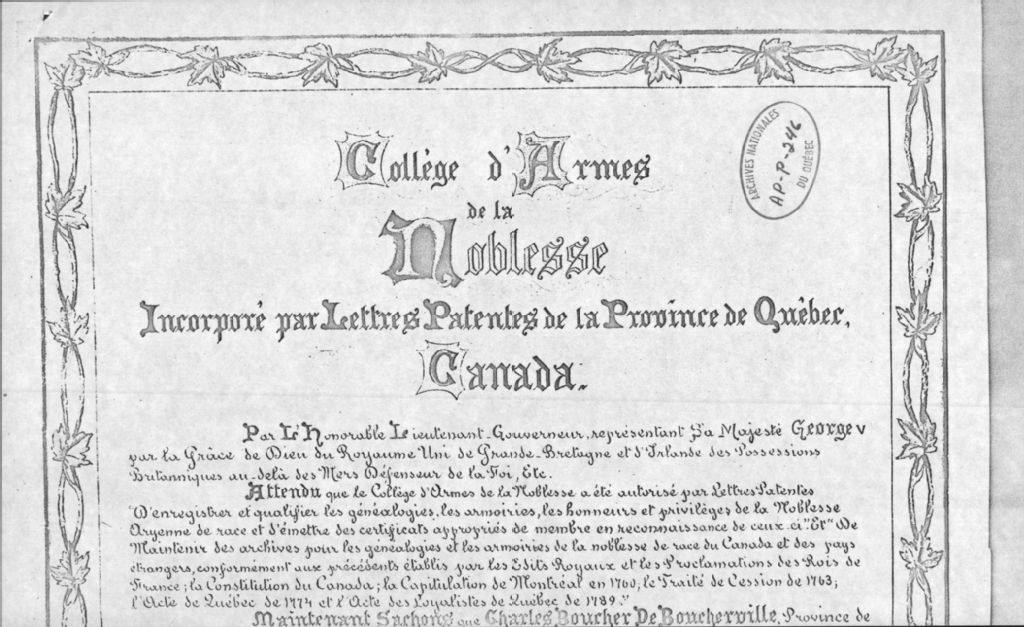 Collège d'Armes
de la
Noblesse
Incorporé par Lettres Patentes de la Province de Québec,
Canada.
ARCHIVES NATIONALES
AP-P-246
DU QUÉBEC
Par L'Honorable Lieutenant-Gouverneur, représentant Sa Majesté George V
par la Grâce de Dieu du Royaume Uni de Grande-Bretagne et d'Irlande des Possessions
Britanniques au-delà des Mers Défenseur de la Foi, Etc.
Attendu que le Collège d'Armes de la Noblesse a été autorisé par Lettres Patentes
"D'enregistrer et qualifier les généalogies, les armoiries, les honneurs et privilèges de la Noblesse
Aryenne de race et d'émettre des certificats appropriés de membre en reconnaissance de ceux-ci." Et "De
Maintenir des archives pour les généalogies et les armoiries de la noblesse de race du Canada et des pays
étrangers, conformément aux précédents établis par les Edits Royaux et les Proclamations des Rois de
France; la Constitution du Canada; la Capitulation de Montréal en 1760; le Traité de Cession de 1763;
l'Acte de Québec de 1774 et l'Acte des Loyalistes de Québec de 1789."
Maintenant Sachons que Charles Boucher De Boucherville, Province de